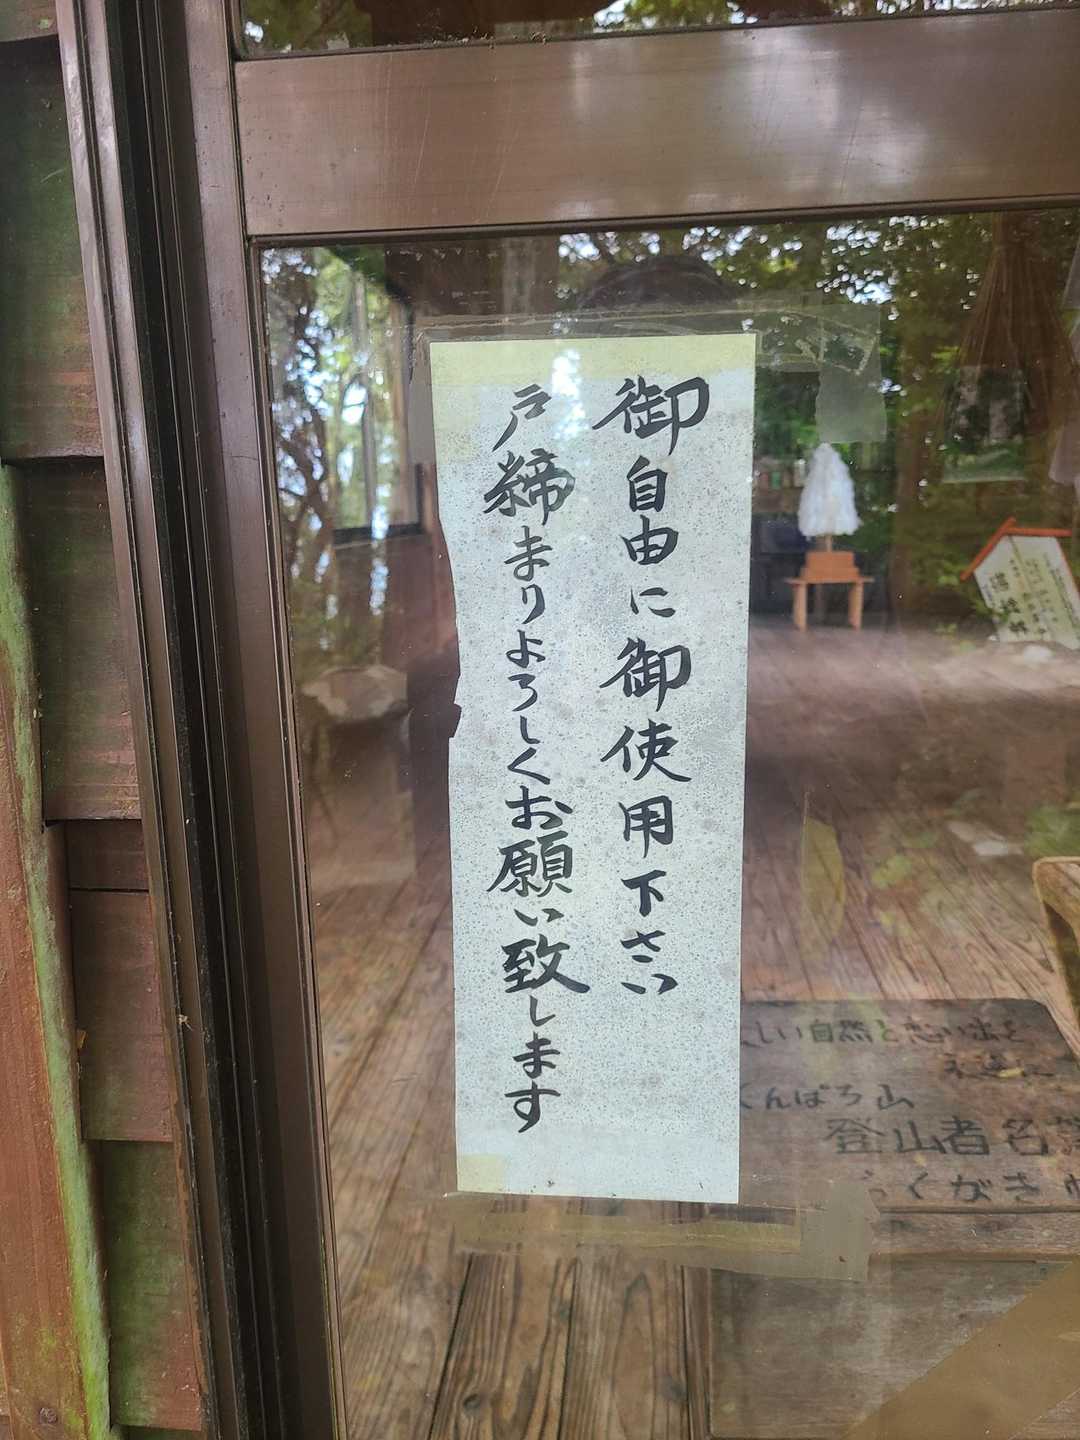 御自由に御使用下さい
戸締まりよろしくお願い致します
しい自然と思い出を
くんぱろ山
登山者名簿
らくがき帖